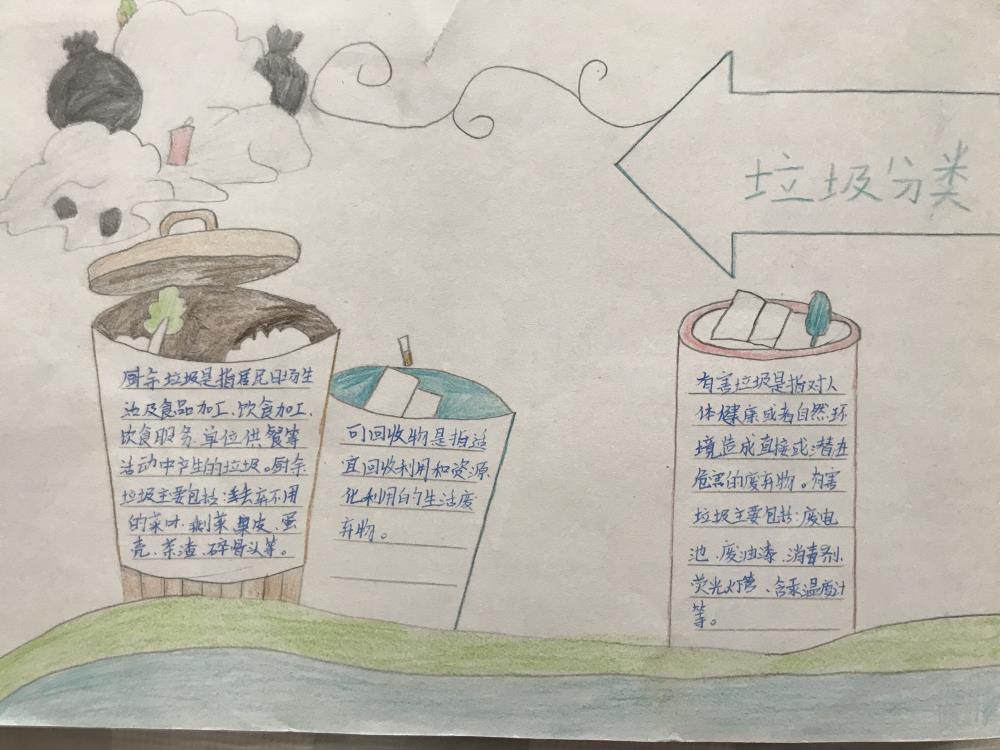 垃圾分类
厨余垃圾是指居民日场生
活及食品加工、饮食加工、
饮食服务、单位供餐等
活动中产生的垃圾。厨余
垃圾主要包括：丢弃不用
的菜叶、剩菜、果皮、蛋
壳、茶渣、碎骨头等。
可回收物是指适
宜回收利用和资源
化利用的生活废
弃物。
有害垃圾是指对人
体健康或者自然环
境造成直接或潜在
危害的废弃物。有害
垃圾主要包括：废电
池、废油漆、消毒剂、
荧光灯管、含汞温度计
等。